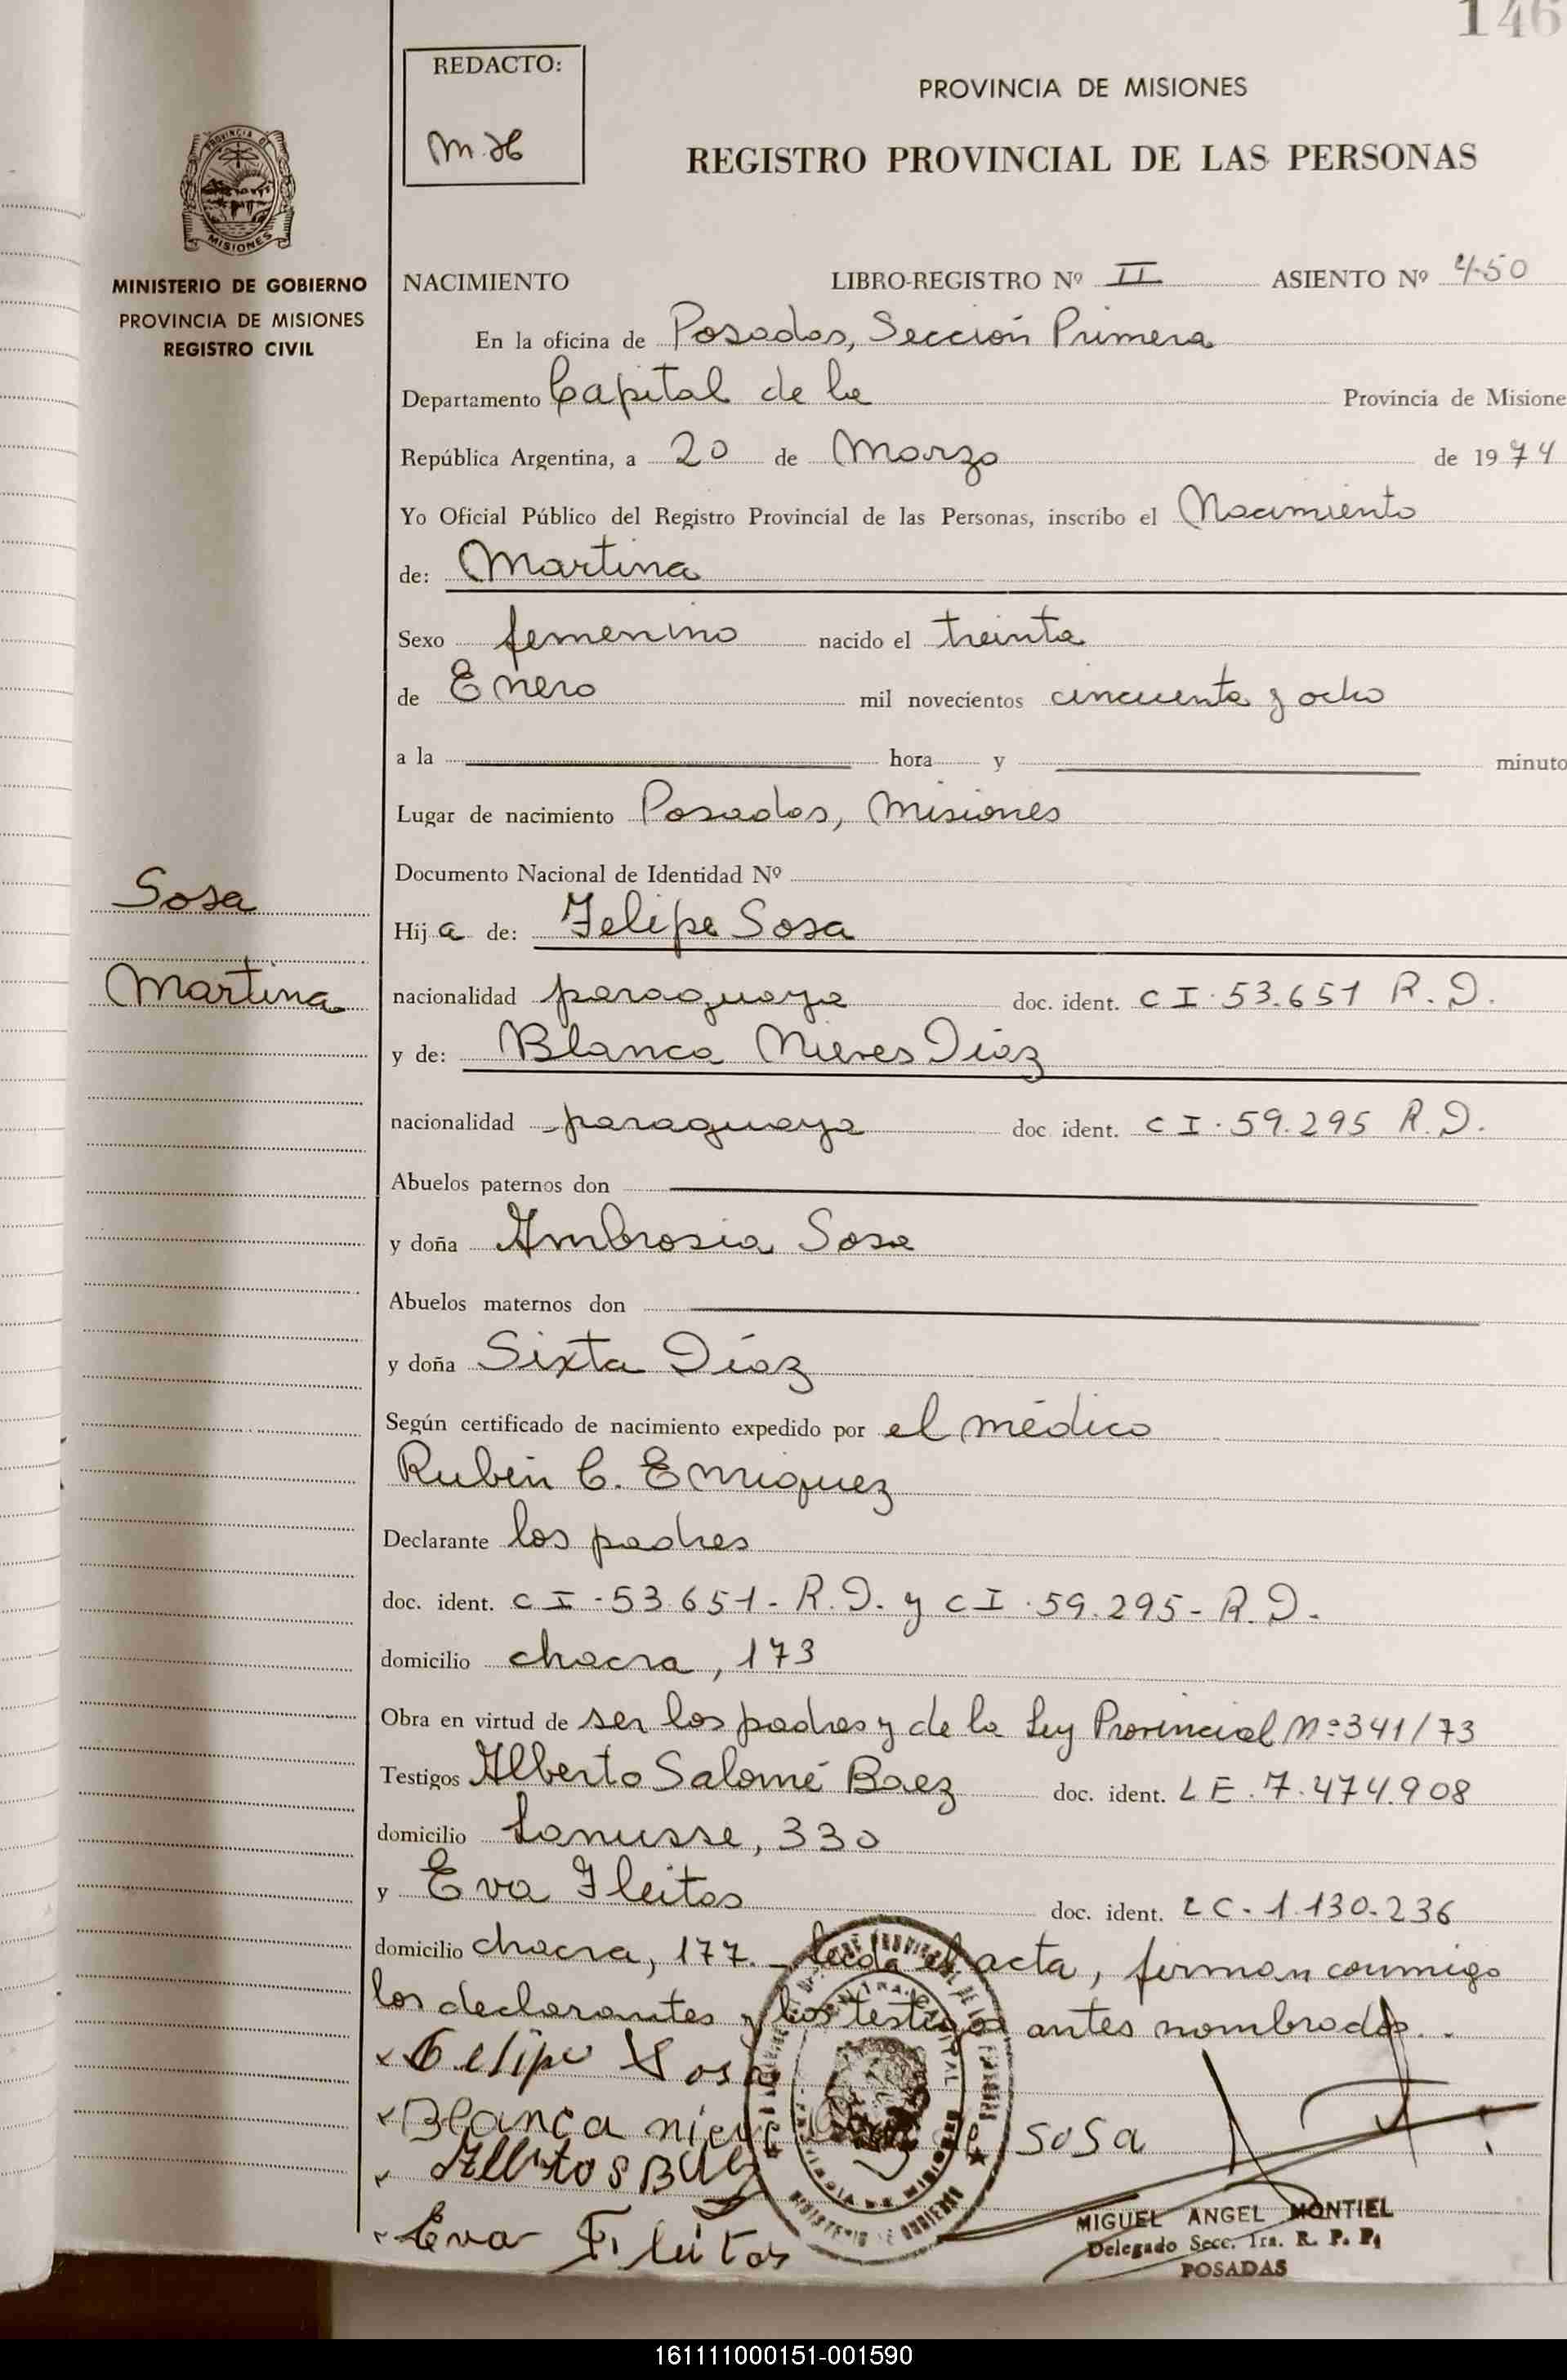 146
REDACTO:
M.H
PROVINCIA DE MISIONES
REGISTRO PROVINCIAL DE LAS PERSONAS
MISIONES
MINISTERIO DE GOBIERNO
PROVINCIA DE MISIONES
REGISTRO CIVIL
NACIMIENTO LIBRO-REGISTRO Nº II ASIENTO Nº 450
En la oficina de Posadas, Sección Primera
Departamento Capital de la Provincia de Misione
República Argentina, a 20 de Marzo de 1974
Yo Oficial Público del Registro Provincial de las Personas, inscribo el Nacimiento
de: Martina
Sexo femenino nacido el treinta
de Enero mil novecientos cincuenta y ocho
a la hora y minuto
Lugar de nacimiento Posadas, Misiones
Documento Nacional de Identidad Nº
Sosa
Martina
Hija de: Felipe Sosa
nacionalidad paraguaya doc. ident. CI. 53.651 R.D.
y de: Blanca Nieves Díaz
nacionalidad paraguaya doc ident. CI. 59.295 R.D.
Abuelos paternos don
y doña Ambrosia Sosa
Abuelos maternos don
y doña Sixta Díaz
Según certificado de nacimiento expedido por el médico
Rubén C. Enriquez
Declarante los padres
doc. ident. CI-53.651- R.D. y CI.59.295- R.D.
domicilio chacra, 173
Obra en virtud de ser los padres y de la Ley Provincial Nº 341/73
Testigos Alberto Salomé Baez doc. ident. LE. 7.474.908
domicilio Lanusse, 330
y Eva Fleitas doc. ident. LC-1.130.236
domicilio chacra, 177.- Leida el acta, firman conmigo
los declarantes y los testigos antes nombrados.
x Felipe Sosa
x Blanca nieve de SOSA
x Alberto S Baez
x Eva Fleitas
MIGUEL ANGEL MONTIEL
Delegado Secc. 1ra. R. P. P.
POSADAS
161111000151-001590